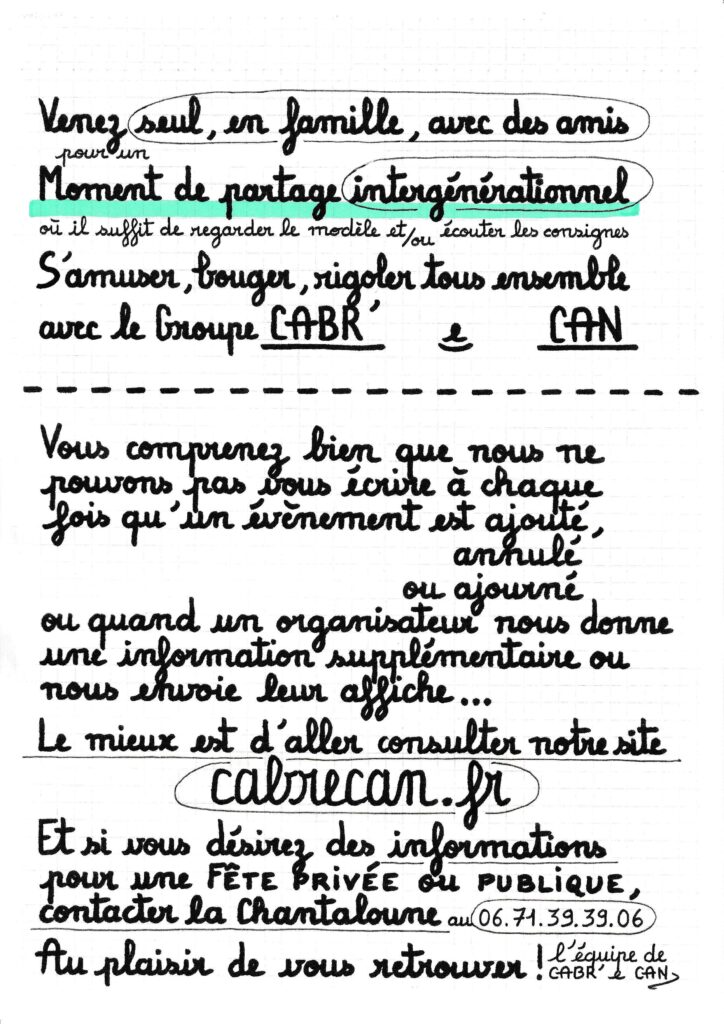 Venez seul, en famille, avec des amis
pour un
Moment de partage intergénérationnel
où il suffit de regarder le modèle et/ou écouter les consignes
S'amuser, bouger, rigoler tous ensemble
avec le Groupe CABR' e CAN
Vous comprenez bien que nous ne
pouvons pas vous écrire à chaque
fois qu'un évènement est ajouté,
annulé
ou ajourné
ou quand un organisateur nous donne
une information supplémentaire ou
nous envoie leur affiche...
Le mieux est d'aller consulter notre site
cabrecan.fr
Et si vous désirez des informations
pour une FÊTE PRIVÉE OU PUBLIQUE,
contacter la Chantaloune au 06.71.39.39.06
Au plaisir de vous retrouver ! l'équipe de
CABR' e CAN